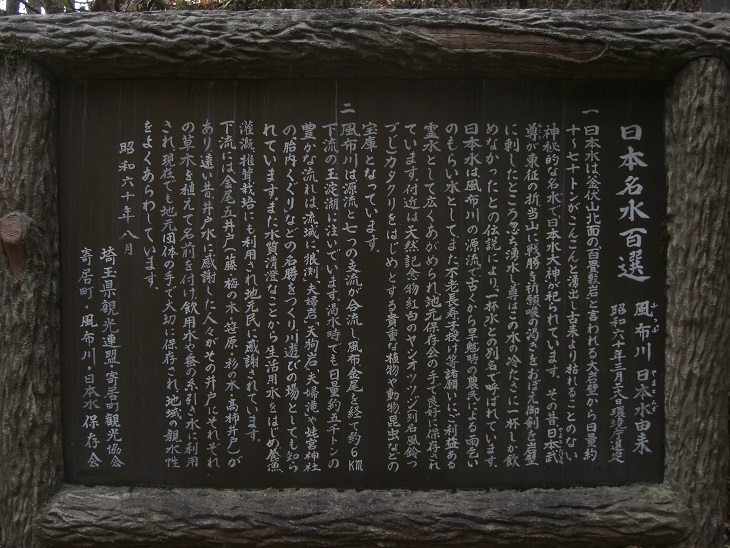 日本名水百選
風布川 日本水由来
ふうぷ やまとみず
昭和六十年三月三〇日環境庁選定
一 日本水は釜伏山北面の百畳敷岩と言われる大岩壁から日量約
十〜七十トンがこんこんと湧出し古来より枯れることのない
神秘的な名水で日本水大神が祀られています。その昔日本武
尊が東征の折当山に戦勝を祈願喉の渇きをおぼえ御剣を岩壁
に刺したところ忽ち湧水し尊はこの水の冷たさに一杯しか飲
めなかったとの伝説により一杯水との別名で呼ばれています。
日本水は風布川の源流で古くから旱魃時の農民による雨乞い
のもらい水としてまた不老長寿子授け等諸願いにご利益ある
霊水として広くあがめられ地元保存会の手で良好に保存され
ています。付近は天然記念物紅白のヤシオツツジ(別名風鈴つ
つじ)カタクリをはじめとする貴重な植物や動物昆虫などの
宝庫となっています。
二 風布川は源流と七つの支流が合流し風布金尾を経て約6km
下流の玉淀湖に注いでいます。渇水時でも日量約五千トンの
豊かな流れは流域に狼淵・夫婦岩・天狗岩・夫婦滝・姥宮神社
の胎内くぐりなどの名勝をつくり川遊びの場としても知ら
れています。また水質清澄なことから生活用水をはじめ養魚
灌漑椎茸栽培にも利用され地元民に感謝されています。
下流には金尾五井戸(藤・梅の水・笹原・杉の水・高柿井戸)が
あり遠い昔井戸水に感謝した人々がその井戸にそれぞれ
の草木を植えて名前を付け飲用水や蚕の糸引き水に利用
され、現在でも地元団体の手で大切に保存され、地域の親水性
をよくあらわしています。
昭和六十年八月
埼玉県観光連盟・寄居町観光協会
寄居町・風布川・日本水保存会